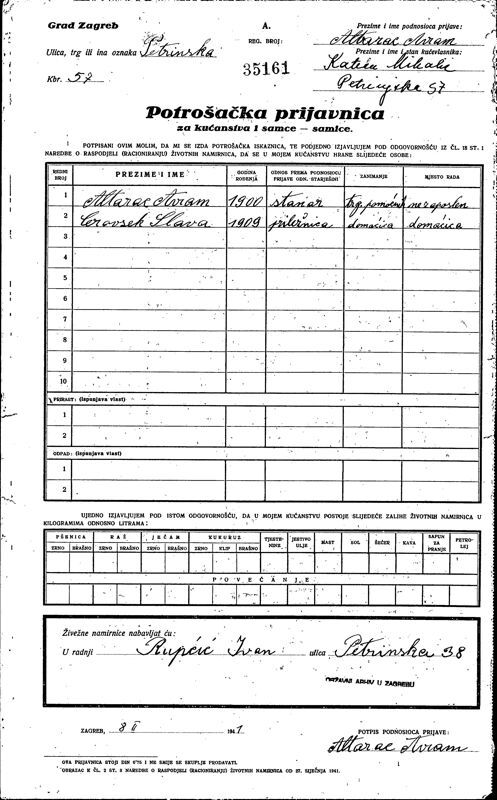 Grad Zagreb
A.
Prezime i ime podnosioca prijave:
Ulica, trg ili ina oznaka Petrinska
REG. BROJ:
Altarac Avram
Prezime i ime i stan kućevlasnika:
Kbr. 57
35161
Katića Mihalić
Petrinjska 57
Potrošačka prijavnica
za kućanstva i samce — samice.
POTPISANI OVIM MOLIM, DA MI SE IZDA POTROŠAČKA ISKAZNICA, TE PODJEDNO IZJAVLJUJEM POD ODGOVORNOŠĆU IZ ČL. 15 ST. 1
NAREDBE O RASPODJELI (RACIONIRANJU) ŽIVOTNIH NAMIRNICA, DA SE U MOJEM KUĆANSTVU HRANE SLIJEDEĆE OSOBE:
REDNI BROJ PREZIME I IME GODINA ROĐENJA ODNOS PREMA PODNOSIOCU PRIJAVE ODN. STARJEŠINI ZANIMANJE MJESTO RADA
1 Altarac Avram 1900 stanar trg. pomoćnik nezaposlen
2 Cerovsek Slava 1909 priležnica domaćica domaćica
3
4
5
6
7
8
9
10
PRIRAST: (ispunjava vlast)
1
2
ODPAD: (ispunjava vlast)
1
2
UJEDNO IZJAVLJUJEM POD ISTOM ODGOVORNOŠĆU, DA U MOJEM KUĆANSTVU POSTOJE SLIJEDEĆE ZALIHE ŽIVOTNIH NAMIRNICA U
KILOGRAMIMA ODNOSNO LITRAMA:
PŠENICA RAŽ JEČAM KUKURUZ TJESTENINE JESTIVO ULJE MAST SOL ŠEĆER KAVA SAPUN ZA PRANJE PETROLEJ
ZRNO BRAŠNO ZRNO BRAŠNO ZRNO BRAŠNO ZRNO KLIP BRAŠNO
POVEĆANJE
Živežne namirnice nabavljat ću:
U radnji Rupčić Ivan ulica Petrinska 38
DRŽAVNI ARHIV U ZAGREBU
ZAGREB, 8 II 1941
POTPIS PODNOSIOCA PRIJAVE:
Altarac Avram
OVA PRIJAVNICA STOJI DIN 0'75 I NE SMIJE SE SKUPLJE PRODAVATI.
OBRAZAC K ČL. 2 ST. 3 NAREDBE O RASPODJELI (RACIONIRANJU) ŽIVOTNIH NAMIRNICA OD 27. SIJEČNJA 1941.